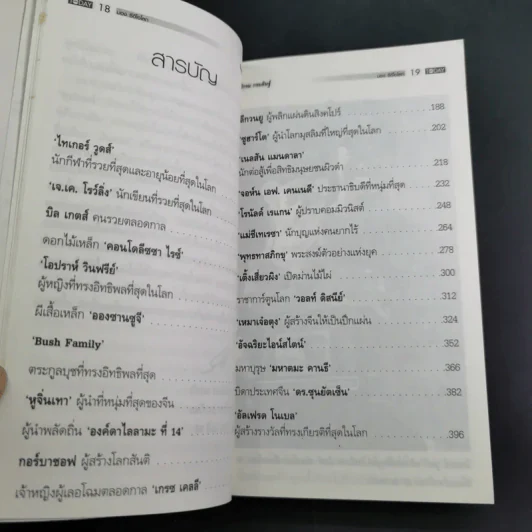 TODAY 18
สารบัญ
'ไทเกอร์ วูดส์'
นักกีฬาที่รวยที่สุดและอายุน้อยที่สุดในโลก
'เจ.เค. โรว์ลิ่ง' นักเขียนที่รวยที่สุดในโลก
บิล เกตส์ คนรวยตลอดกาล
ดอกไม้เหล็ก 'คอนโดลีซซา ไรซ์'
'โอปราห์ วินฟรีย์'
ผู้หญิงที่ทรงอิทธิพลที่สุดในโลก
ผีเสื้อเหล็ก 'อองซานซูจี'
'Bush Family'
ตระกูลบุชที่ทรงอิทธิพลที่สุด
'หูจิ่นเทา' ผู้นำที่หนุ่มที่สุดของจีน
ผู้นำพลัดถิ่น 'องค์ดาไลลามะ ที่ 14'
กอร์บาชอฟ ผู้สร้างโลกสันติ
เจ้าหญิงผู้เลอโฉมตลอดกาล 'เกรซ เคลลี่'
19 TODAY
ลีกวนยู ผู้พลิกแผ่นดินสิงคโปร์ 188
'ซูฮาร์โต' ผู้นำโลกมุสลิมที่ใหญ่ที่สุดในโลก 202
'เนลสัน แมนดาลา'
นักต่อสู้เพื่อสิทธิมนุษยชนผิวดำ 218
'จอห์น เอฟ. เคนเนดี้' ประธานาธิบดีที่หนุ่มที่สุด 232
'โรนัลด์ เรแกน' ผู้ปราบคอมมิวนิสต์ 248
'แม่ชีเทเรซา' นักบุญแห่งคนยากไร้ 264
'พุทธทาสภิกขุ' พระสงฆ์ตัวอย่างแห่งยุค 278
'เติ้งเสี่ยวผิง' เปิดม่านไม้ไผ่ 300
ราชาการ์ตูนโลก 'วอลท์ ดิสนีย์' 312
'เหมาเจ๋อตุง' ผู้สร้างจีนให้เป็นปึกแผ่น 324
'อัจฉริยะไอน์สไตน์' 352
มหาบุรุษ 'มหาตมะ คานธี' 366
บิดาประเทศจีน 'ดร.ซุนยัตเซ็น' 382
'อัลเฟรด โนเบล'
ผู้สร้างรางวัลที่ทรงเกียรติที่สุดในโลก 396